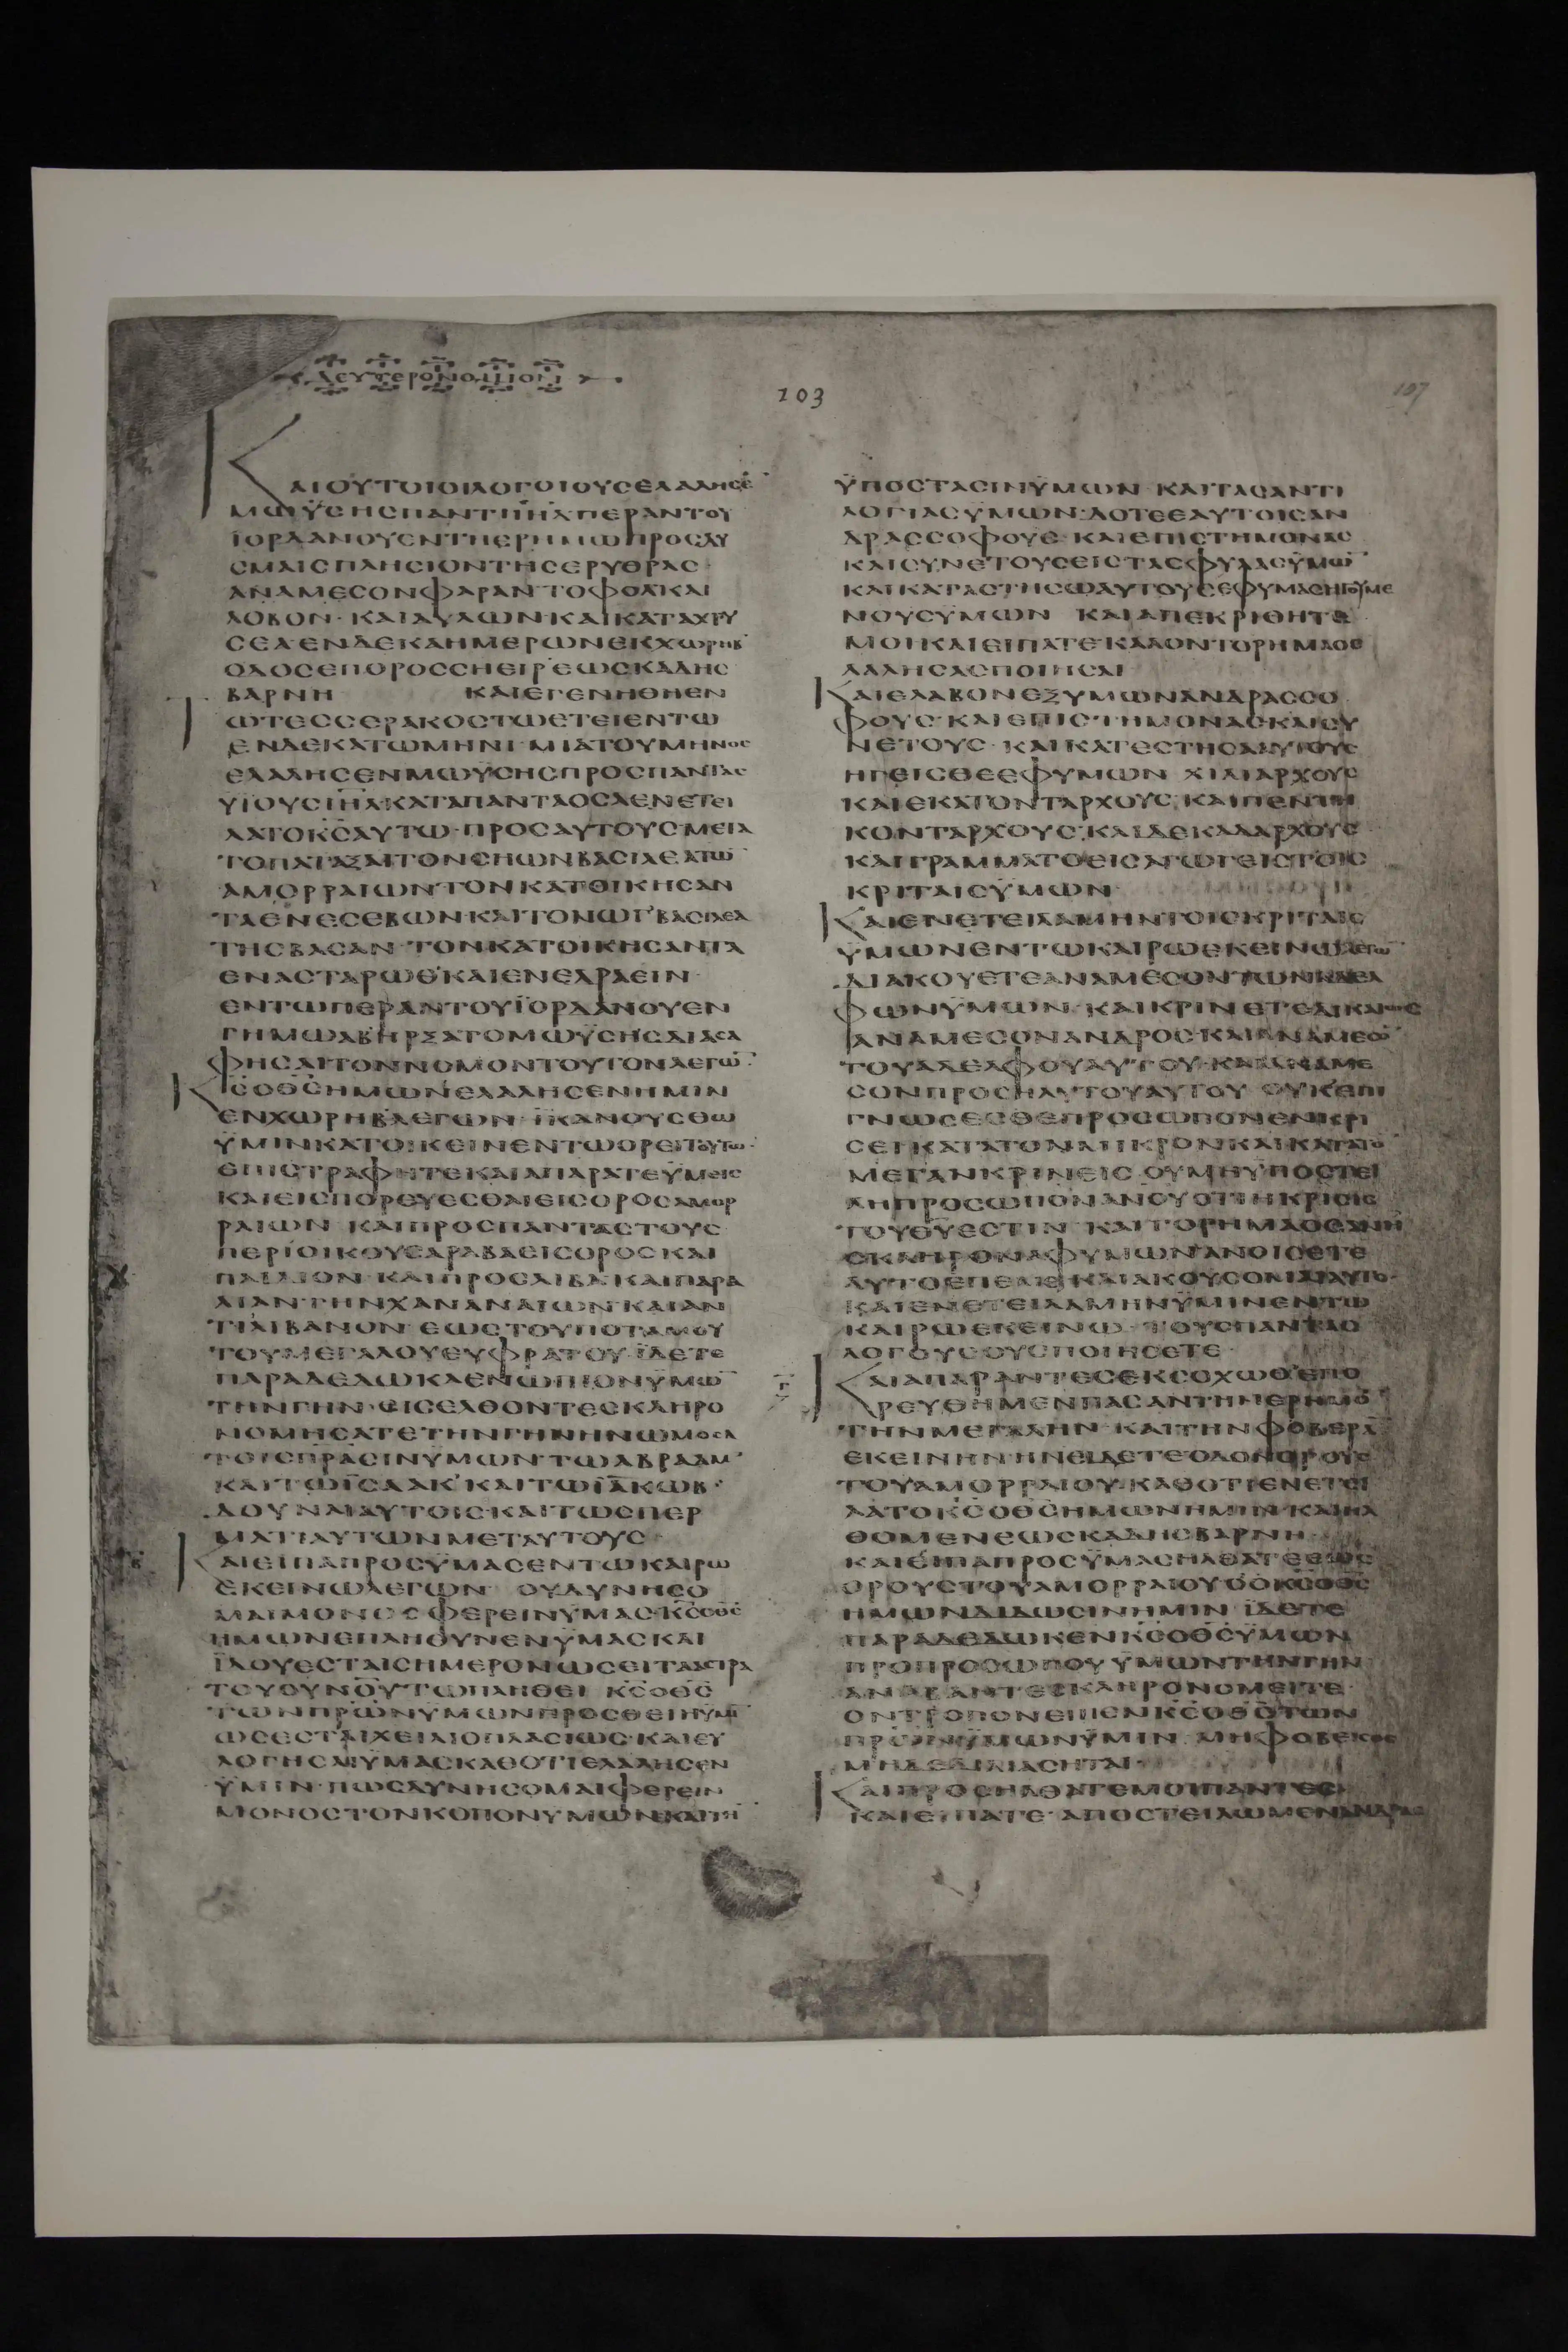 ΔΕΥΤΕΡΟΝΟΜΙΟΝ
103
107
ΚΑΙΟΥΤΟΙΟΙΛΟΓΟΙΟΥΣΕΛΑΛΗΣΕ̄
ΜΩΫΣΗΣΠΑΝΤΙΙ̅Η̅Λ̅ΠΕΡΑΝΤΟΥ
ΪΟΡΔΑΝΟΥΕΝΤΗΕΡΗΜΩΠΡΟΣΔΥ
ΣΜΑΙΣΠΛΗΣΙΟΝΤΗΣΕΡΥΘΡΑΣ
ΑΝΑΜΕΣΟΝΦΑΡΑΝΤΟΦΟΛΚΑΙ
ΛΟΒΟΝ·ΚΑΙΑΥΛΩΝΚΑΙΚΑΤΑΧΡΥ
ΣΕΑ·ΕΝΔΕΚΑΗΜΕΡΩΝΕΚΧΩΡΗΒ
ΟΔΟΣΕΠΟΡΟΣΣΗΕΙΡΕΩΣΚΑΔΗΣ
ΒΑΡΝΗ ΚΑΙΕΓΕΝΗΘΗΕΝ
ΩΤΕΣΣΕΡΑΚΟΣΤΩΕΤΕΙΕΝΤΩ
ΕΝΔΕΚΑΤΩΜΗΝΙ·ΜΙΑΤΟΥΜΗΝΟΣ
ΕΛΑΛΗΣΕΝΜΩΫΣΗΣΠΡΟΣΠΑΝΤΑΣ
ΥΪΟΥΣΙ̅Η̅Λ̅·ΚΑΤΑΠΑΝΤΑΟΣΑΕΝΕΤΕΙ
ΛΑΤΟΚ̅Σ̅ΑΥΤΩ·ΠΡΟΣΑΥΤΟΥΣ·ΜΕΤΑ
ΤΟΠΑΤΑΞΑΙΤΟΝΣΗΩΝΒΑΣΙΛΕΑΤΩ̄
ΑΜΟΡΡΑΙΩΝ·ΤΟΝΚΑΤΟΙΚΗΣΑΝ
ΤΑΕΝΕΣΕΒΩΝ·ΚΑΙΤΟΝΩΓʼΒΑΣΙΛΕΑ
ΤΗΣΒΑΣΑΝ·ΤΟΝΚΑΤΟΙΚΗΣΑΝΤΑ
ΕΝΑΣΤΑΡΩΘʼΚΑΙΕΝΕΔΡΑΕΙΝ·
ΕΝΤΩΠΕΡΑΝΤΟΥΪΟΡΔΑΝΟΥΕΝ
ΓΗΜΩΑΒʼΗΡΞΑΤΟΜΩΫΣΗΣΔΙΑΣΑ
ΦΗΣΑΙΤΟΝΝΟΜΟΝΤΟΥΤΟΝΛΕΓΩ̄·
Κ̅Σ̅ΟΘ̅Σ̅ΗΜΩΝΕΛΑΛΗΣΕΝΗΜΙΝ
ΕΝΧΩΡΗΒΛΕΓΩΝ·ΪΚΑΝΟΥΣΘΩ
ΫΜΙΝΚΑΤΟΙΚΕΙΝΕΝΤΩΟΡΕΙΤΟΥΤΩ·
ΕΠΙΣΤΡΑΦΗΤΕΚΑΙΑΠΑΡΑΤΕΫΜΕΙΣ
ΚΑΙΕΙΣΠΟΡΕΥΕΣΘΑΙΕΙΣΟΡΟΣΑΜΟΡ
ΡΑΙΩΝ ΚΑΙΠΡΟΣΠΑΝΤΑΣΤΟΥΣ
ΠΕΡΙΟΙΚΟΥΣΑΡΑΒΑΕΙΣΟΡΟΣΚΑΙ
ΠΑΙΔΙΟΝ·ΚΑΙΠΡΟΣΛΙΒΑ·ΚΑΙΠΑΡΑ
ΛΙΑΝΓΗΝΧΑΝΑΝΑΙΩΝ·ΚΑΙΑΝ
ΤΙΛΙΒΑΝΟΝ·ΕΩΣΤΟΥΠΟΤΑΜΟΥ
ΤΟΥΜΕΓΑΛΟΥΕΥΦΡΑΤΟΥ·ΪΔΕΤΕ
ΠΑΡΑΔΕΔΩΚΑΕΝΩΠΙΟΝΫΜΩ̄
ΤΗΝΓΗΝ·ΕΙΣΕΛΘΟΝΤΕΣΚΛΗΡΟ
ΝΟΜΗΣΑΤΕΤΗΝΓΗΝΗΝΩΜΟΣΑ
ΤΟΙΣΠ̅Ρ̅Α̅ΣΙΝΫΜΩΝ·ΤΩΑΒΡΑΑΜʼ
ΚΑΙΤΩΪΣΑΑΚʼΚΑΙΤΩΪΑΚΩΒ·
ΔΟΥΝΑΙΑΥΤΟΙΣ·ΚΑΙΤΩΣΠΕΡ
ΜΑΤΙΑΥΤΩΝΜΕΤΑΥΤΟΥΣ·
ΚΑΙΕΙΠΑΠΡΟΣΫΜΑΣΕΝΤΩΚΑΙΡΩ
ΕΚΕΙΝΩΛΕΓΩΝ· ΟΥΔΥΝΗΣΟ
ΜΑΙΜΟΝΟΣΦΕΡΕΙΝΫΜΑΣ·Κ̅Σ̅ΟΘ̅Σ̅
ΗΜΩΝΕΠΛΗΘΥΝΕΝΫΜΑΣΚΑΙ
ΪΔΟΥΕΣΤΑΙΣΗΜΕΡΟΝΩΣΕΙΤΑΑΣΤΡΑ
ΤΟΥΟΥΝ̅Ο̅Υ̅ΤΩΠΛΗΘΕΙ Κ̅Σ̅ΟΘ̅Σ̅
ΤΩΝΠ̅Ρ̅ΩΝΫΜΩΝΠΡΟΣΘΕΙΗΫΜῙ
ΩΣΕΣΤΑΙΧΕΙΛΙΟΠΛΑΣΙΩΣ·ΚΑΙΕΥ
ΛΟΓΗΣΑΙΫΜΑΣΚΑΘΟΤΙΕΛΑΛΗΣΕΝ
ΫΜΙΝ·ΠΩΣΔΥΝΗΣΟΜΑΙΦΕΡΕΙΝ
ΜΟΝΟΣΤΟΝΚΟΠΟΝΫΜΩΝΚΑΙΤΗ̄
ΫΠΟΣΤΑΣΙΝΫΜΩΝ·ΚΑΙΤΑΣΑΝΤΙ
ΛΟΓΙΑΣΫΜΩΝ·ΔΟΤΕΕΑΥΤΟΙΣΑΝ
ΔΡΑΣΣΟΦΟΥΣ·ΚΑΙΕΠΙΣΤΗΜΟΝΑΣ
ΚΑΙΣΥΝΕΤΟΥΣΕΙΣΤΑΣΦΥΛΑΣΫΜΩ̄
ΚΑΙΚΑΤΑΣΤΗΣΩΑΥΤΟΥΣΕΦΥΜΑΣΗΓΟΥΜΕ
ΝΟΥΣΫΜΩΝ ΚΑΙΑΠΕΚΡΙΘΗΤΕ
ΜΟΙΚΑΙΕΙΠΑΤΕ·ΚΑΛΟΝΤΟΡΗΜΑΟΕ
ΛΑΛΗΣΑΣΠΟΙΗΣΑΙ
ΚΑΙΕΛΑΒΟΝΕΞΥΜΩΝΑΝΔΡΑΣΣΟ
ΦΟΥΣ·ΚΑΙΕΠΙΣΤΗΜΟΝΑΣΚΑΙΣΥ
ΝΕΤΟΥΣ·ΚΑΙΚΑΤΕΣΤΗΣΑΑΥΤΟΥΣ
ΗΓΕΙΣΘΕΕΦΥΜΩΝ ΧΙΛΙΑΡΧΟΥΣ
ΚΑΙΕΚΑΤΟΝΤΑΡΧΟΥΣ·ΚΑΙΠΕΝΤΗ
ΚΟΝΤΑΡΧΟΥΣ·ΚΑΙΔΕΚΑΔΑΡΧΟΥΣ
ΚΑΙΓΡΑΜΜΑΤΟΕΙΣΑΓΩΓΕΙΣΤΟΙΣ
ΚΡΙΤΑΙΣΫΜΩΝ·
ΚΑΙΕΝΕΤΕΙΛΑΜΗΝΤΟΙΣΚΡΙΤΑΙΣ
ΫΜΩΝΕΝΤΩΚΑΙΡΩΕΚΕΙΝΩΛΕΓΩ̄
ΔΙΑΚΟΥΕΤΕΑΝΑΜΕΣΟΝΤΩΝΑΔΕΛ
ΦΩΝΫΜΩΝ·ΚΑΙΚΡΙΝΕΤΕΔΙΚΑΙΩΣ
ΑΝΑΜΕΣΟΝΑΝΔΡΟΣ·ΚΑΙΑΝΑΜΕΣΟ̄
ΤΟΥΑΔΕΛΦΟΥΑΥΤΟΥ·ΚΑΙΑΝΑΜΕ
ΣΟΝΠΡΟΣΗΛΥΤΟΥΑΥΤΟΥ ΟΥΚΕΠΙ
ΓΝΩΣΕΣΘΕΠΡΟΣΩΠΟΝΕΝΚΡΙ
ΣΕΙΚΑΤΑΤΟΝΜΙΚΡΟΝΚΑΙΚΑΤΑΤΟ̄
ΜΕΓΑΝΚΡΙΝΕΙΣ·ΟΥΜΗΫΠΟΣΤΕΙ
ΛΗΠΡΟΣΩΠΟΝΑΝΟΥΟΤΙΗΚΡΙΣΙΣ
ΤΟΥΘ̅Υ̅ΕΣΤΙΝ ΚΑΙΤΟΡΗΜΑΟΕΑΝΗ
ΣΚΛΗΡΟΝΑΦΥΜΩΝΑΝΟΙΣΕΤΕ
ΑΥΤΟΕΠΕΜΕ·ΚΑΙΑΚΟΥΣΟΜΑΙΑΥΤΟ·
ΚΑΙΕΝΕΤΕΙΛΑΜΗΝΫΜΙΝΕΝΤΩ
ΚΑΙΡΩΕΚΕΙΝΩ ΤΟΥΣΠΑΝΤΑΣ
ΛΟΓΟΥΣΟΥΣΠΟΙΗΣΕΤΕ·
ΚΑΙΑΠΑΡΑΝΤΕΣΕΚΣΟΧΩΘΕΠΟ
ΡΕΥΘΗΜΕΝΠΑΣΑΝΤΗΝΕΡΗΜΟ̄
ΤΗΝΜΕΓΑΛΗΝ·ΚΑΙΤΗΝΦΟΒΕΡᾹ
ΕΚΕΙΝΗΝΗΝΕΙΔΕΤΕΟΔΟΝΟΡΟΥΣ
ΤΟΥΑΜΟΡΡΑΙΟΥ·ΚΑΘΟΤΙΕΝΕΤΕΙ
ΛΑΤΟΚ̅Σ̅ΟΘ̅Σ̅ΗΜΩΝΗΜΙΝ·ΚΑΙΗΛ
ΘΟΜΕΝΕΩΣΚΑΔΗΣΒΑΡΝΗ·
ΚΑΙΕΙΠΑΠΡΟΣΫΜΑΣΗΛΘΑΤΕΕΩΣ
ΟΡΟΥΣΤΟΥΑΜΟΡΡΑΙΟΥΟΟΚ̅Σ̅ΟΘ̅Σ̅
ΗΜΩΝΔΙΔΩΣΙΝΗΜΙΝ ΪΔΕΤΕ
ΠΑΡΑΔΕΔΩΚΕΝΚ̅Σ̅ΟΘ̅Σ̅ΫΜΩΝ
ΠΡΟΠΡΟΣΩΠΟΥΥΜΩΝΤΗΝΓΗΝ
ΑΝΑΒΑΝΤΕΣΚΛΗΡΟΝΟΜΕΙΤΕ·
ΟΝΤΡΟΠΟΝΕΙΠΕΝΚ̅Σ̅ΟΘ̅Σ̅ΤΩΝ
Π̅Ρ̅ΩΝΫΜΩΝΫΜΙΝ·ΜΗΦΟΒΕΙΣΘΕ
ΜΗΔΕΔΙΛΙΑΣΗΤΑΙ·
ΚΑΙΠΡΟΣΗΛΘΑΤΕΜΟΙΠΑΝΤΕΣ
ΚΑΙΕΙΠΑΤΕ·ΑΠΟΣΤΕΙΛΩΜΕΝΑΝΔΡΑΣ